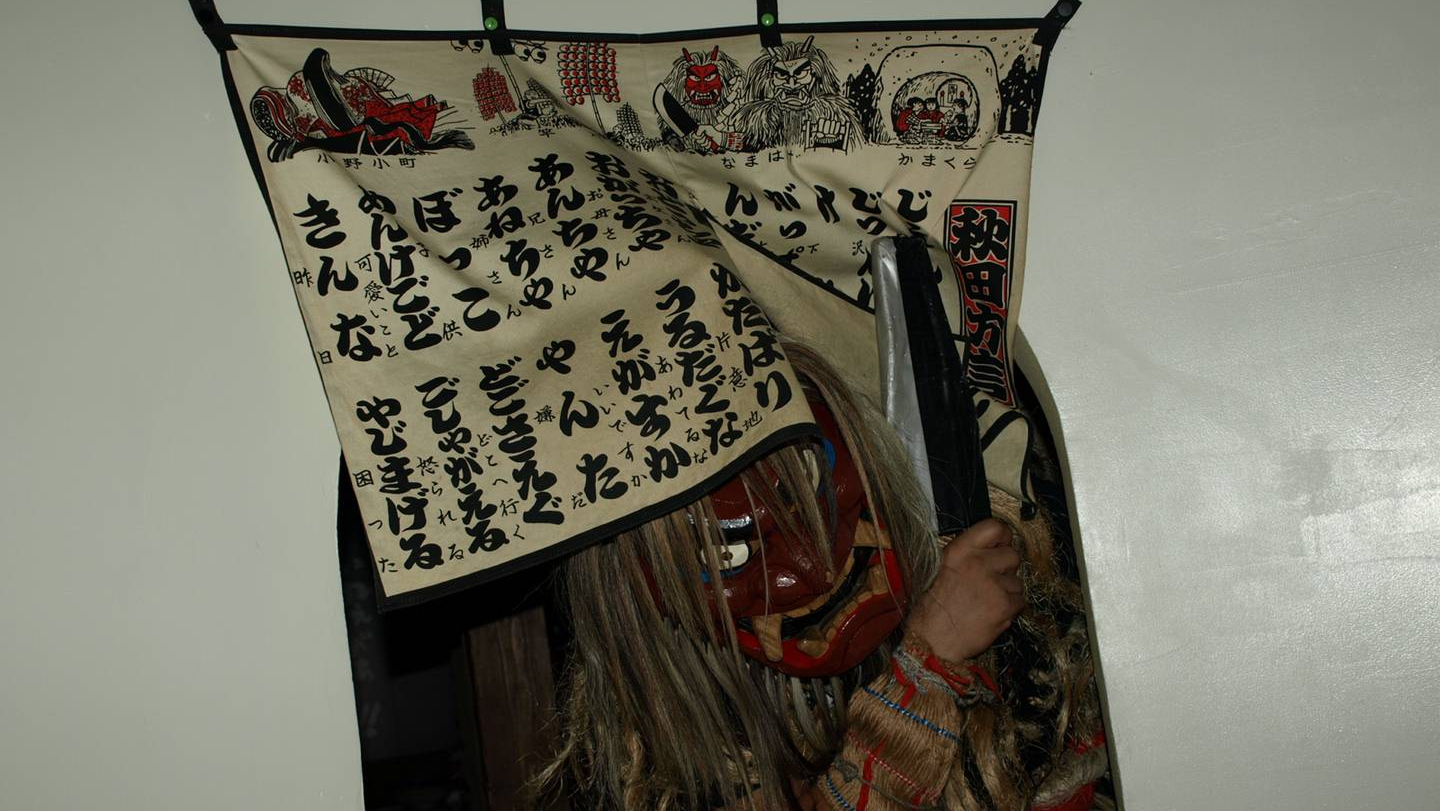 小野小町
なまは
かまくら
秋田方言
じ
じっ
け
がっ
んだ
おがっちゃ
お母さん
あんちゃ
兄さん
あねちゃ
姉さん
ぼっこ
子供
めんけごど
可愛いこと
きんな
昨日
かたぱり
片意地
うるだぐな
あわてるな
えがすか
いいですか
やんた
嫌だ
どごさえぐ
どこへ行く
ごしゃがえる
怒られる
やじまげる
困った